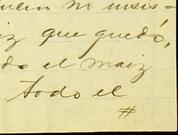 no insis-
que quedó,
do el maiz
todo el
#